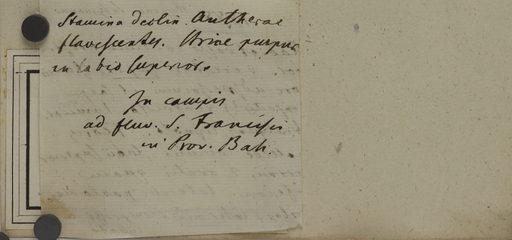 Stamina declin. Antherae
flavescentes. Striae purpur.
in labio superiore.
In campis
ad fluv. S. Francisci
in Prov. Bah.